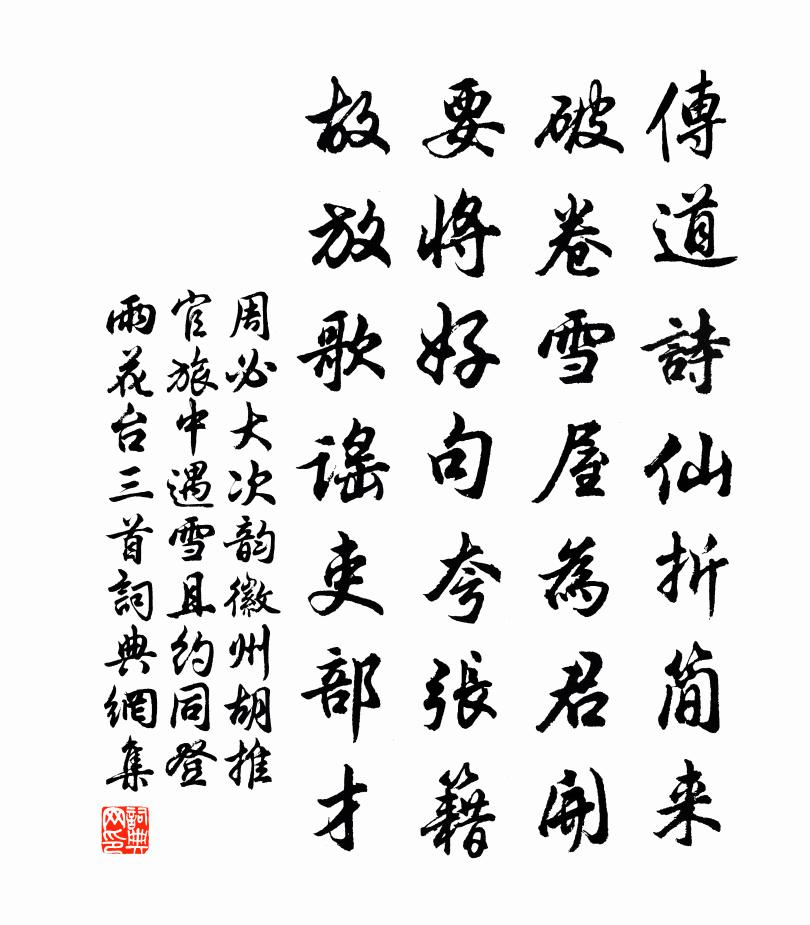 傳道詩仙折简来
破卷雪屋為君開
要將好句夸張籍
故放歌謡吏部才
周必大次韵徽州胡推
官旅中遇雪且约同登
雨花台三首詞典網集
詞典
网印